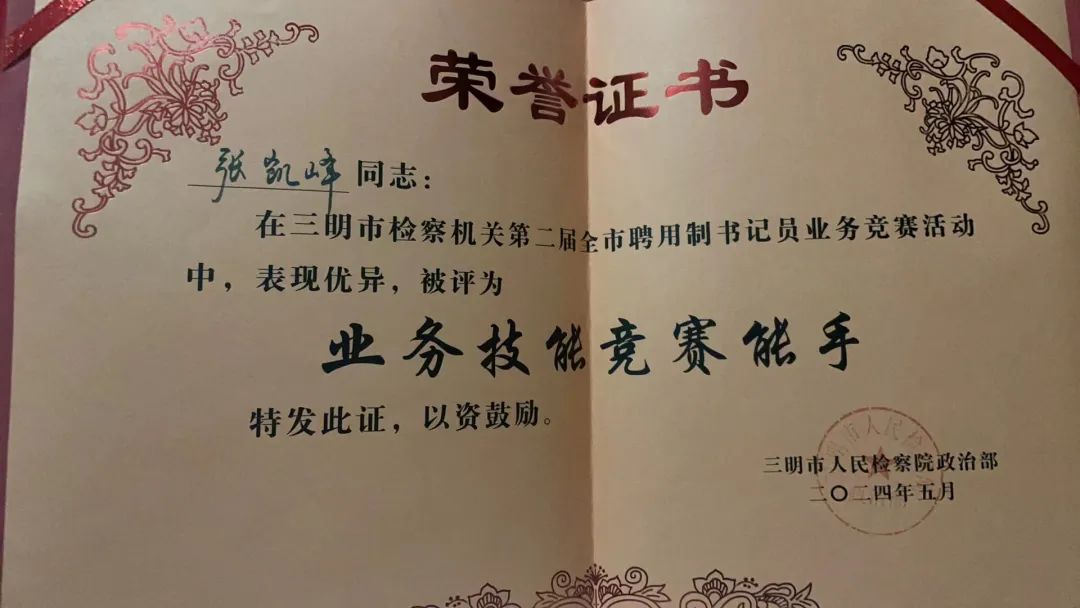 荣誉证书
张凯峰同志：
在三明市检察机关第二届全市聘用制书记员业务竞赛活动
中，表现优异，被评为
业务技能竞赛能手
特发此证，以资鼓励。
三明市人民检察院政治部
二〇二四年五月